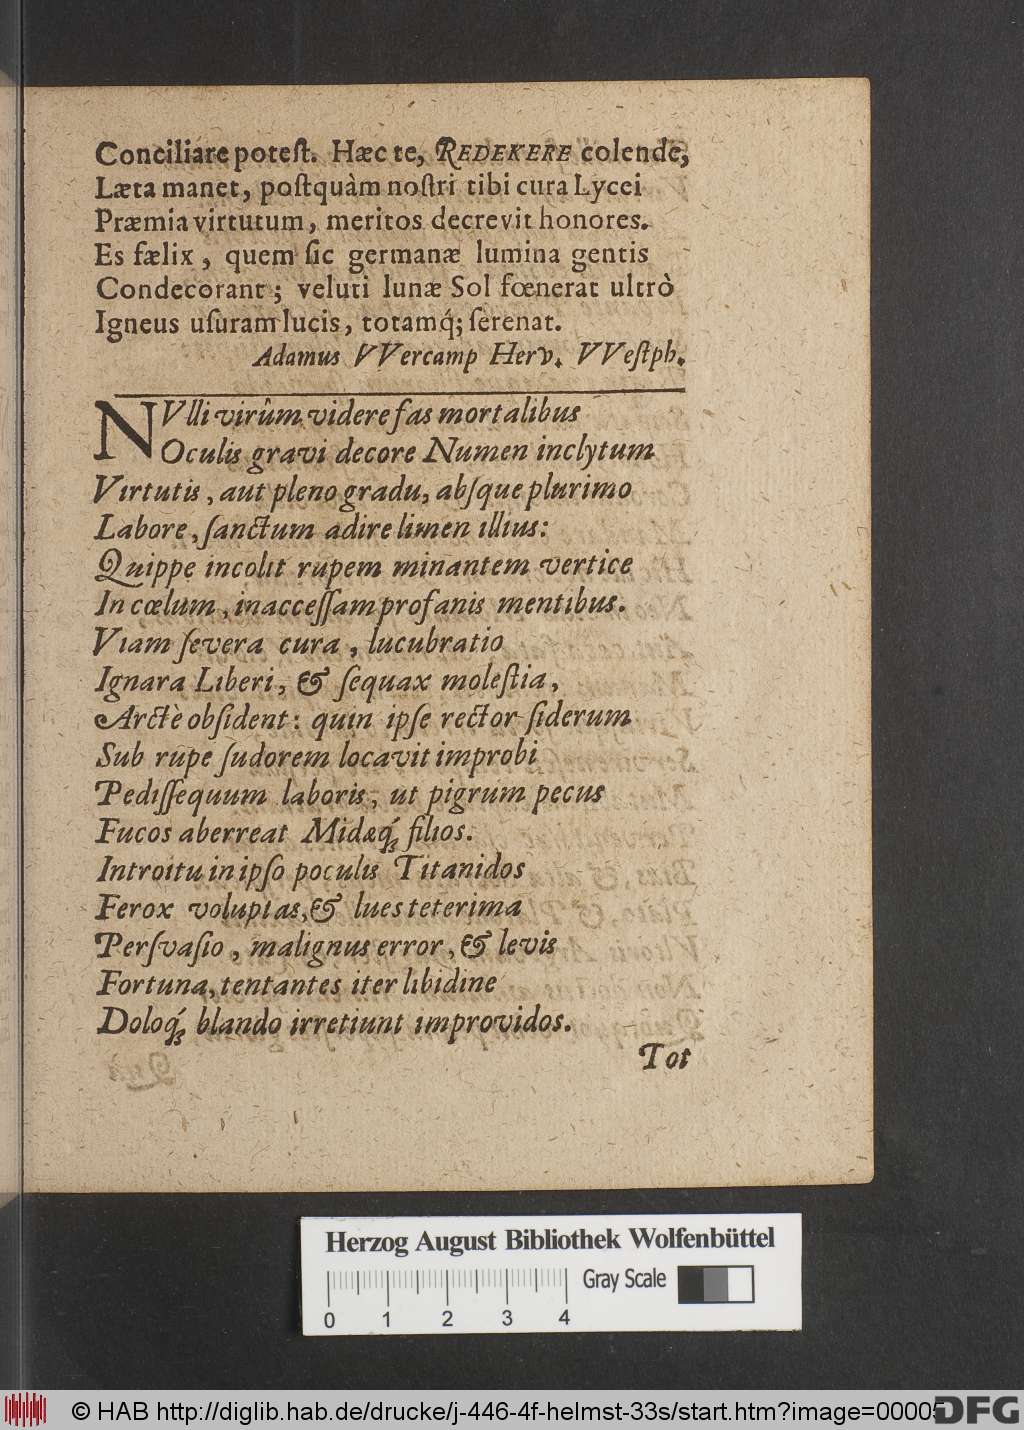 Conciliare potest. Hæc te, REDEKERE colende,
Læta manet, postquàm nostri tibi cura Lycei
Præmia virtutum, meritos decrevit honores.
Es fælix, quem sic germanæ lumina gentis
Condecorant; veluti lunæ Sol fœnerat ultrò
Igneus usuram lucis, totamq́; serenat.
Adamus VVercamp Herv. VVestph.
NVlli virûm videre fas mortalibus
Oculis gravi decore Numen inclytum
Virtutis, aut pleno gradu, absque plurimo
Labore, sanctum adire limen illius:
Quippe incolit rupem minantem vertice
In cœlum, inaccessam profanis mentibus.
Viam severa cura, lucubratio
Ignara Liberi, & sequax molestia,
Arctè obsident: quin ipse rector siderum
Sub rupe sudorem locavit improbi
Pedissequum laboris, ut pigrum pecus
Fucos aberreat Midæq́; filios.
Introitu in ipso poculis Titanidos
Ferox voluptas, & lues teterima
Persvasio, malignus error, & levis
Fortuna, tentantes iter libidine
Doloq́; blando irretiunt improvidos.
Tot
Herzog August Bibliothek Wolfenbüttel
Gray Scale
0 1 2 3 4
© HAB http://diglib.hab.de/drucke/j-446-4f-helmst-33s/start.htm?image=00005
DFG